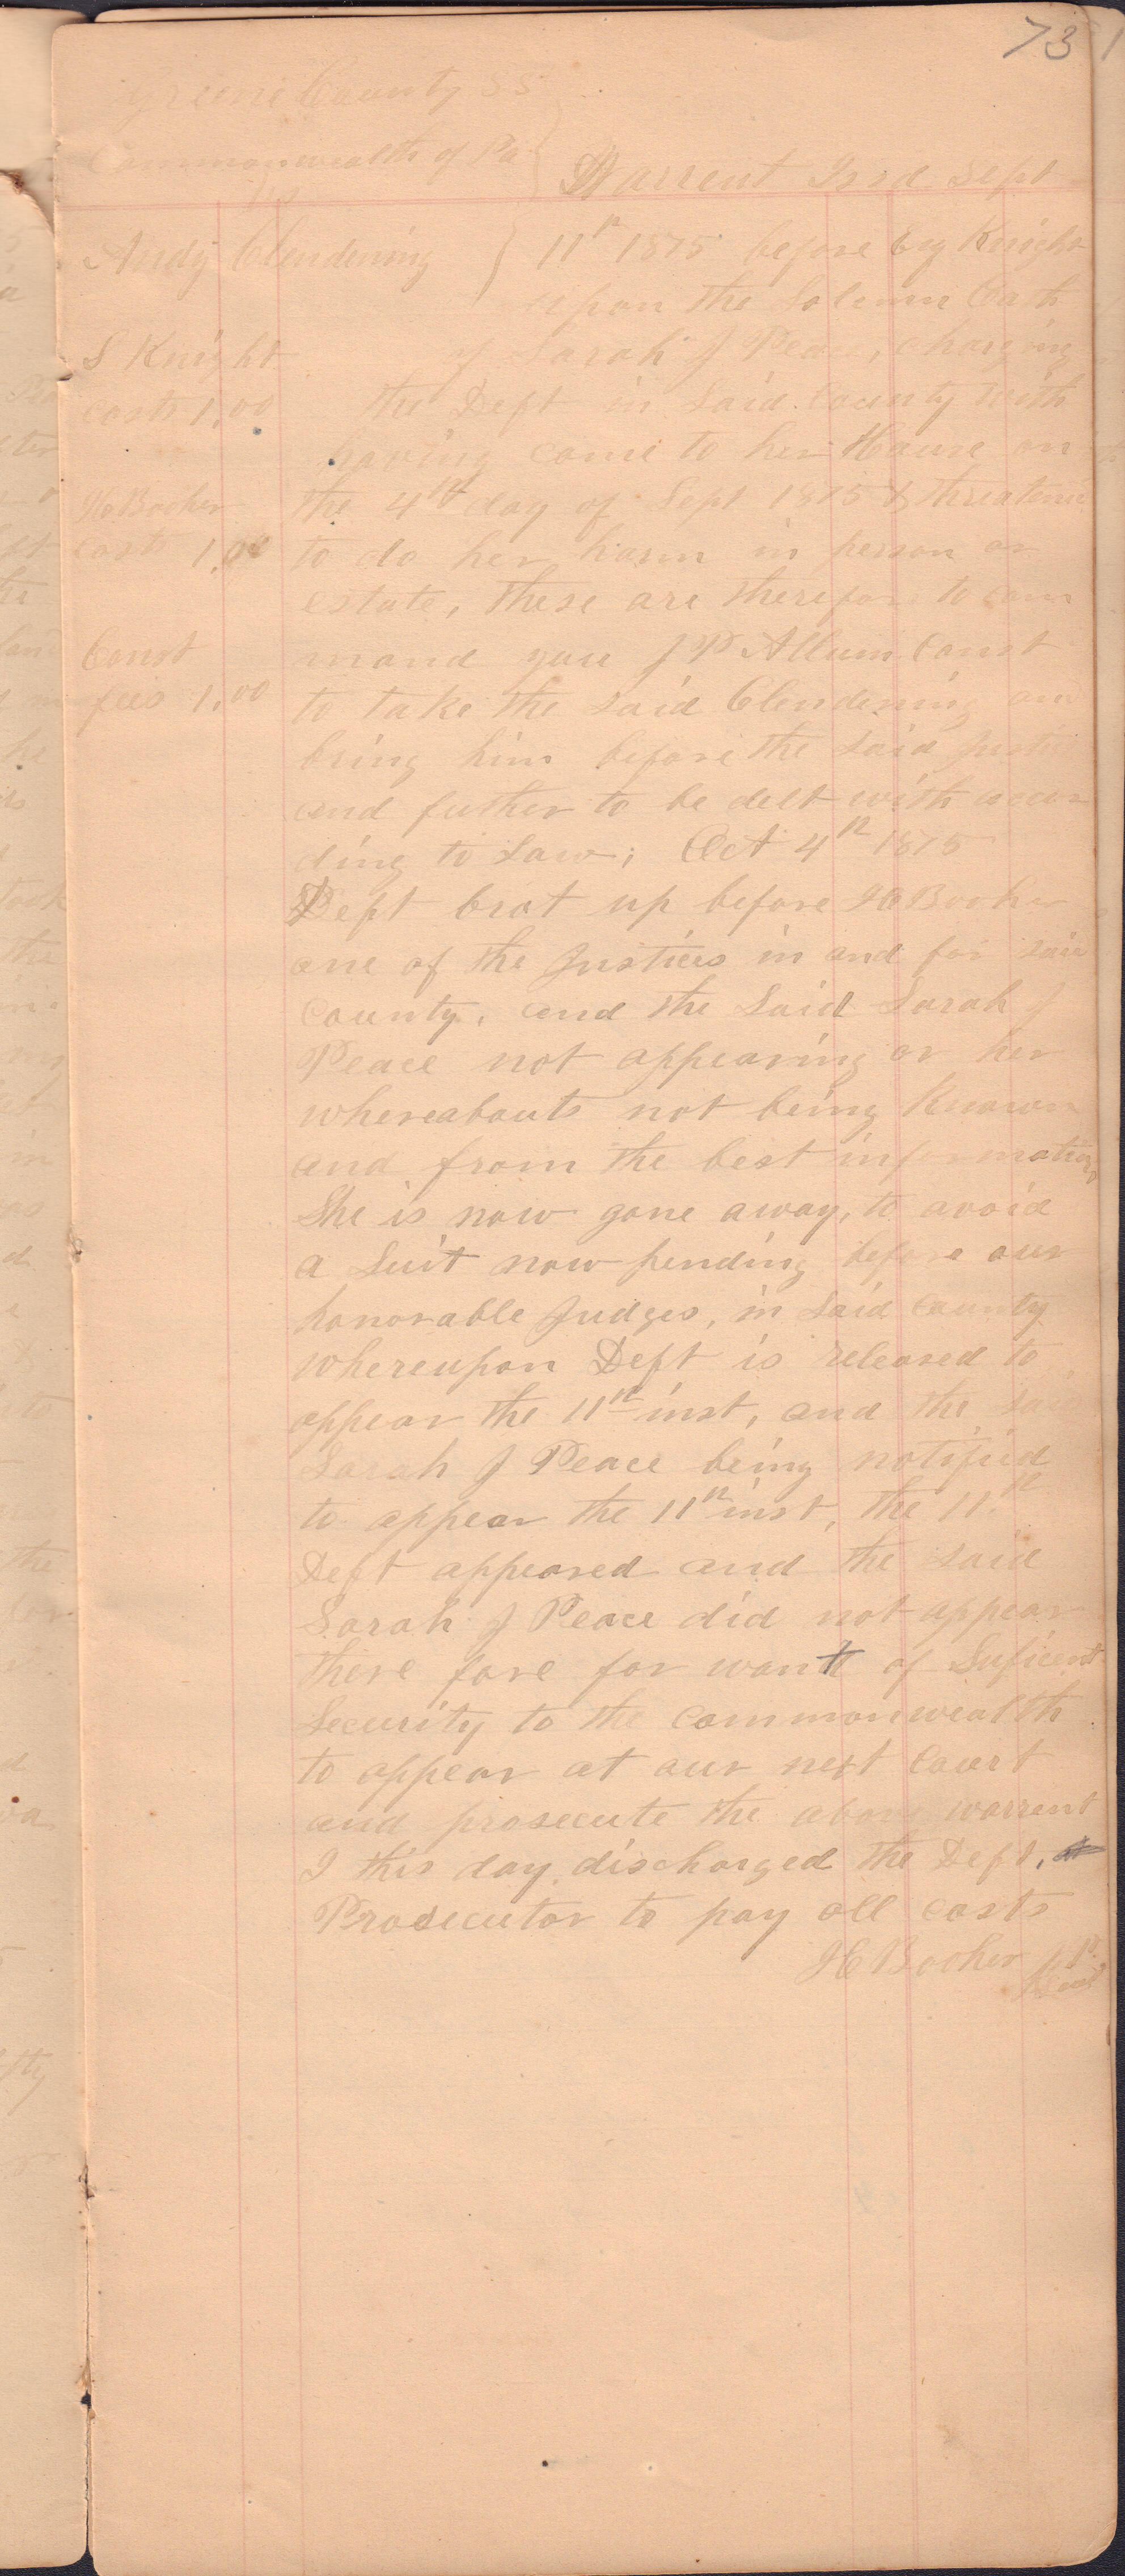 73
Greene County SS
Commonwealth of Pa
vs
Warrent Issd Sept
Andy Clendening } 11th 1875 before Esq Knight
upon the Solemn Oath
of Sarah J Peace, charging
S Knight
the Deft in Said County with
costs 1.00
having come to her House on
the 4th day of Sept 1875 & threatened
H Booher
costs 1.00
to do her harm in person or
estate, these are therefore to com
Const
mand you J P Allum Const
fees 1.00
to take the Said Clendening and
bring him before the Said Justice
and futher to be delt with accor
ding to Law; Oct 4th 1875
Deft brot up before H Booher
one of the Justices in and for said
County, and the Said Sarah J
Peace not appearing or her
whereabouts not being Known
and from the best information
She is now gone away, to avoid
a Suit now pending before our
honorable Judges, in Said County
whereupon Deft is released to
appear the 11th inst, and the said
Sarah J Peace being notified
to appear the 11th inst, the 11th
Deft appeared and the Said
Sarah J Peace did not appear
there fore for want of Suficent
Security to the Commonwealth
to appear at our next Court
and prosecute the above warrent
I this day discharged the Deft.
Prosecutor to pay all costs
H Booher J P
Seal